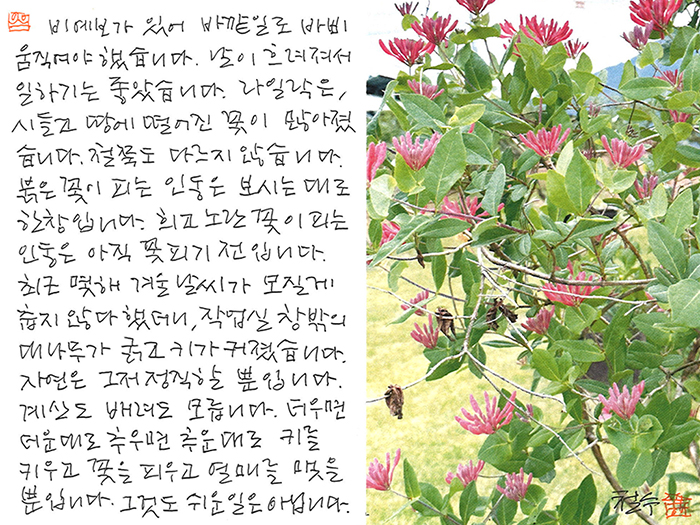 비예보가 있어 바깥일로 바삐
움직여야 했습니다. 날이 흐려져서
일하기는 좋았습니다. 라일락은,
시들고 땅에 떨어진 꽃이 많아졌
습니다. 철쭉도 다르지 않습니다.
붉은 꽃이 피는 인동은 보시는대로
한창입니다. 희고 노란 꽃이 피는
인동은 아직 꽃피기 전입니다.
최근 몇해 겨울 날씨가 모질게
춥지 않다 했더니, 작업실 창밖의
대나무가 굵고 키가 커졌습니다.
자연은 그저 정직할 뿐입니다.
계산도 배려도 모릅니다. 더우면
더운대로 추우면 추운대로 키를
키우고 꽃을 피우고 열매를 맺을
뿐입니다. 그것도 쉬운일은 아닙니다.
철수